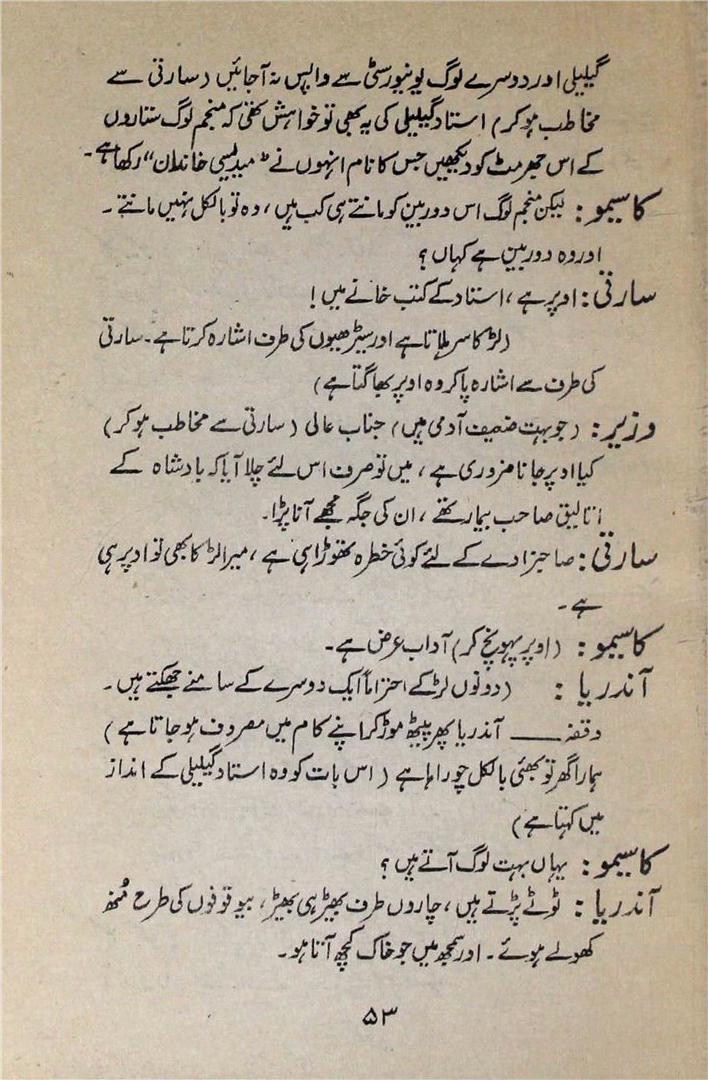 گیلیلی اور دوسرے لوگ یونیورسٹی سے واپس نہ آجائیں (سارتی سے
مخاطب ہو کر) استاد گیلیلی کی یہ بھی تو خواہش تھی کہ منجم لوگ ستاروں
کے اس جھرمٹ کو دیکھیں جس کا نام انہوں نے "میدلیسی خاندان" رکھا ہے۔
کاسیمو: لیکن منجم لوگ اس دوربین کو مانتے ہی کب ہیں، وہ تو بالکل نہیں مانتے۔
اور وہ دوربین ہے کہاں؟
سارتی: اوپر ہے، استاد کے کتب خانے میں!
(لڑکا سر ہلاتا ہے اور سیڑھیوں کی طرف اشارہ کرتا ہے۔ سارتی
کی طرف سے اشارہ پا کر وہ اوپر بھاگتا ہے)
وزیر: (جو بہت ضعیف آدمی ہیں) جناب عالی (سارتی سے مخاطب ہو کر)
کیا اوپر جانا ضروری ہے، میں تو صرف اس لئے چلا آیا کہ بادشاہ کے
اتالیق صاحب بیمار تھے، ان کی جگہ مجھے آنا پڑا۔
سارتی: صاحبزادے کے لئے کوئی خطرہ تھوڑا ہی ہے، میرا لڑکا بھی تو اوپر ہی
ہے۔
کاسیمو: (اوپر پہونچ کر) آداب عرض ہے۔
آندریا: (دونوں لڑکے احتراماً ایک دوسرے کے سامنے جھکتے ہیں۔
وقفہ ــــــ آندریا پھر پیٹھ موڑ کر اپنے کام میں مصروف ہو جاتا ہے)
ہمارا گھر تو بھئی بالکل چوراہا ہے (اس بات کو وہ استاد گیلیلی کے انداز
میں کہتا ہے)
کاسیمو: یہاں بہت لوگ آتے ہیں؟
آندریا: ٹوٹے پڑتے ہیں، چاروں طرف بھیڑ ہی بھیڑ، بیوقوفوں کی طرح مُنھ
کھولے ہوئے۔ اور سمجھ میں جو خاک کچھ آتا ہو۔
۵۳